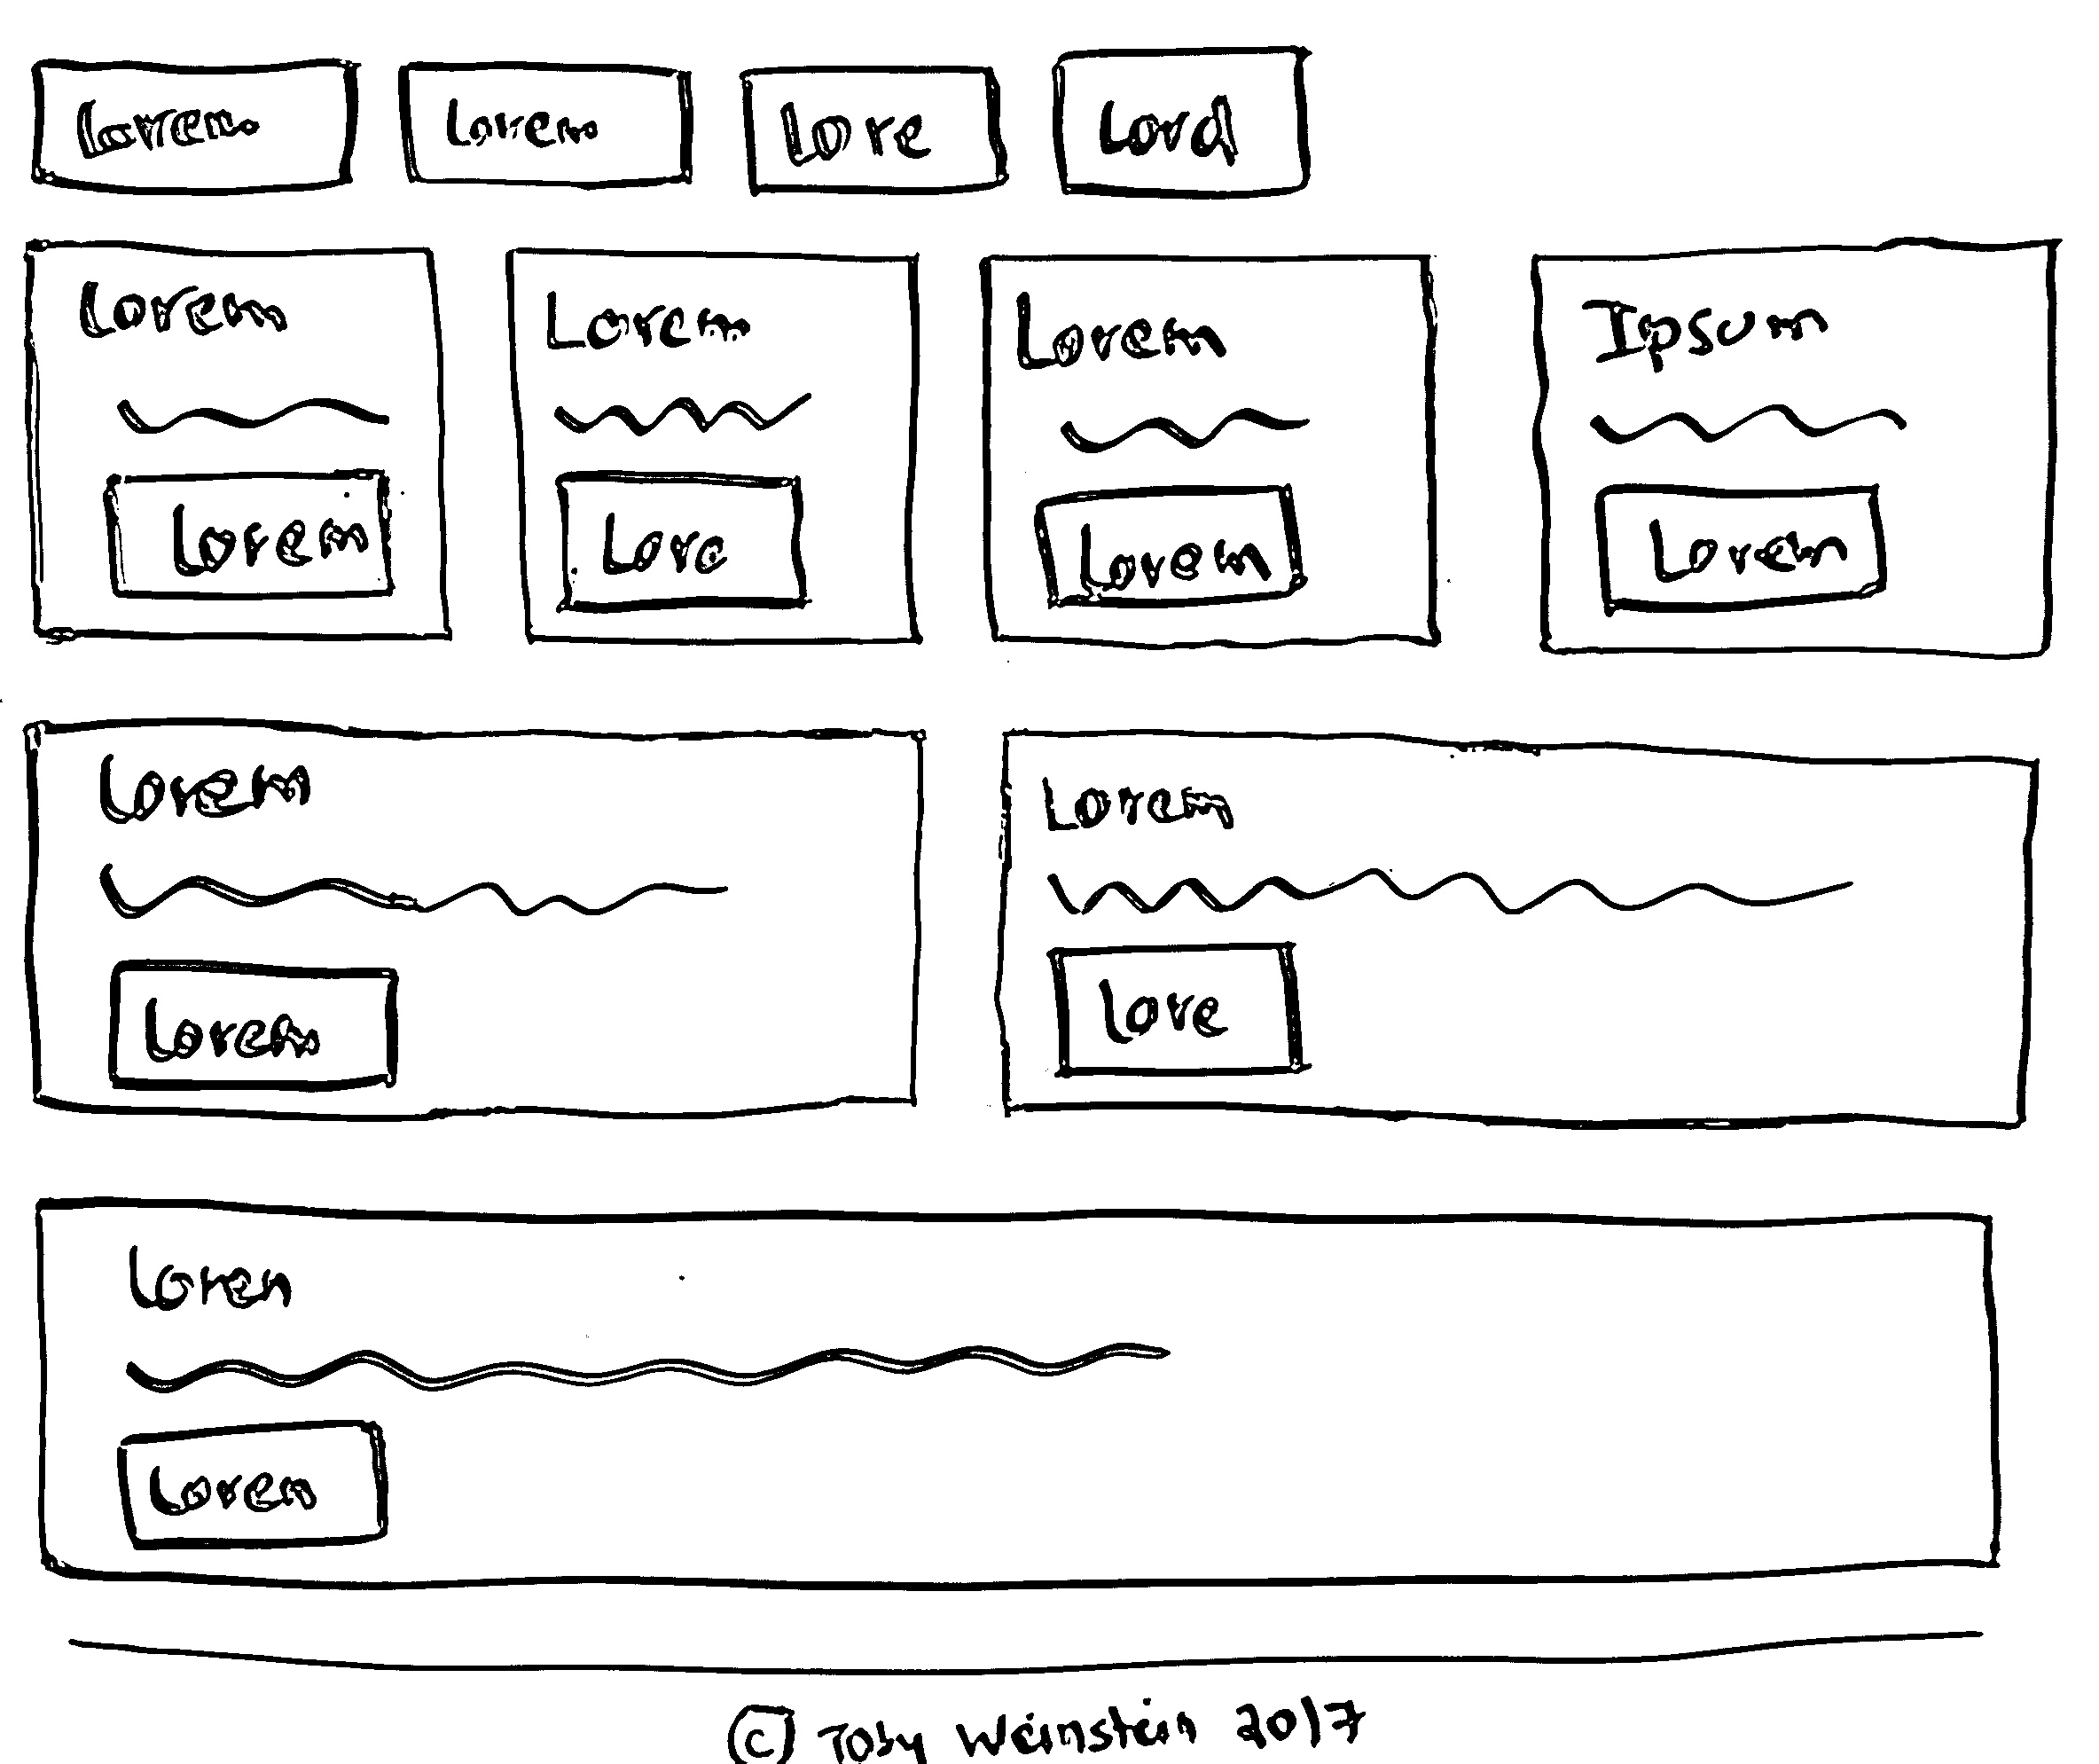 Lorem Lorem Lore Lord
Lorem Lorem Lorem Ipsum
Lorem Lore Lorem Lorem
Lorem Lorem
Lorem Lore
Loren
Lorem
© Toby Weinstein 2017